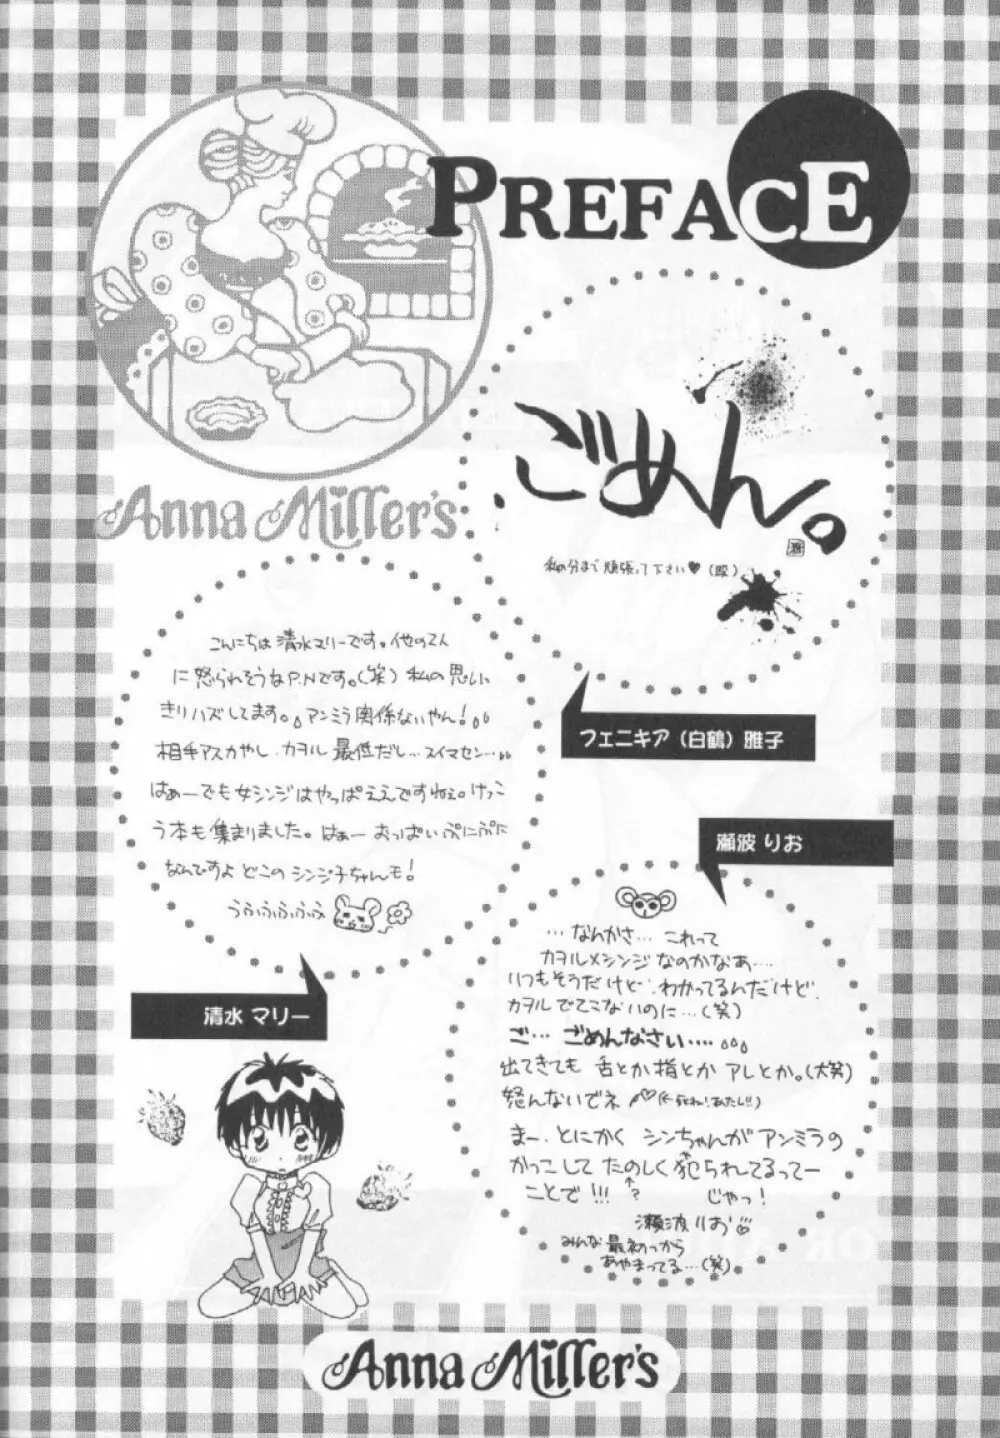 PREFACE
Anna Miller's
ごめん。
私の分まで頑張って下さい♥
フェニキア（白鶴）雅子
こんにちは清水マリーです。他の2人
に怒られそうなP.Nです。(笑) 私の思いっ
きりハズしてます。アンミラ関係ないやん!
相手アスカやし、カヲル最低だし…スイマセン…
はぁーでも女シンジはやっぱええですねぇ。けっこ
う本も集まりました。はぁー おっぱいぷにぷに
なんですよ どこのシンジ子ちゃんも!
うふふふふふ
清水 マリー
瀬波 りお
…なんかさ… これって
カヲル×シンジ なのかなあ…
いつもそうだけど、わかってるんだけど、
カヲルでてこないのに…(笑)
ご… ごめんなさい…
出てきても 舌とか指とか アレとか。(大笑)
怒んないでネ (←死ね!あたし!!)
まー、とにかく シンちゃんが アンミラの
かっこして たのしく犯られてるってー
ことで!!! ↑? じゃっ!
瀬波りお
みんな最初っから
あやまってる…(笑)
Anna Miller's